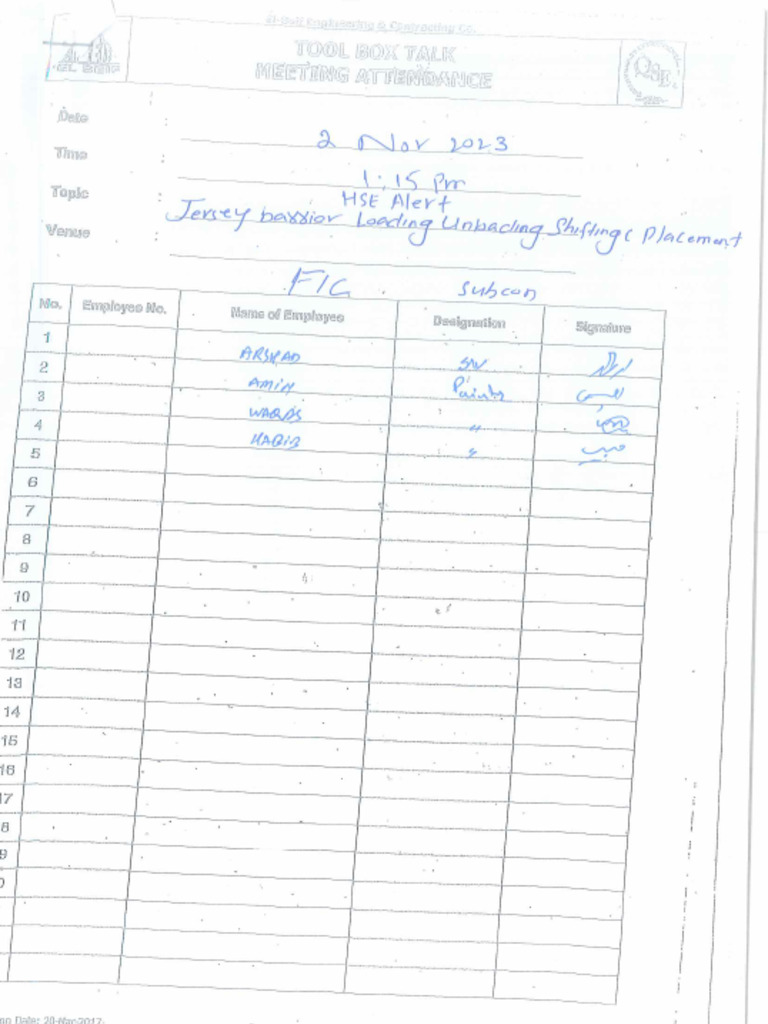 El-Seif Engineering & Contracting Co.
TOOL BOX TALK
MEETING ATTENDANCE
EL SEIF
Date :
2 Nov 2023
Time :
1:15 Pm
Topic :
HSE Alert
Jersey barrior Loading Unloading Shifting & Placement
Venue :
FIG subcon
No. Employee No. Name of Employee Designation Signature
1
ARSHAD
2
AMIN
3
WAQAS "
4
HABIB "
5
6
7
8
9
10
11
12
13
14
15
16
17
8
9
0
Date: 20-Mar-2017